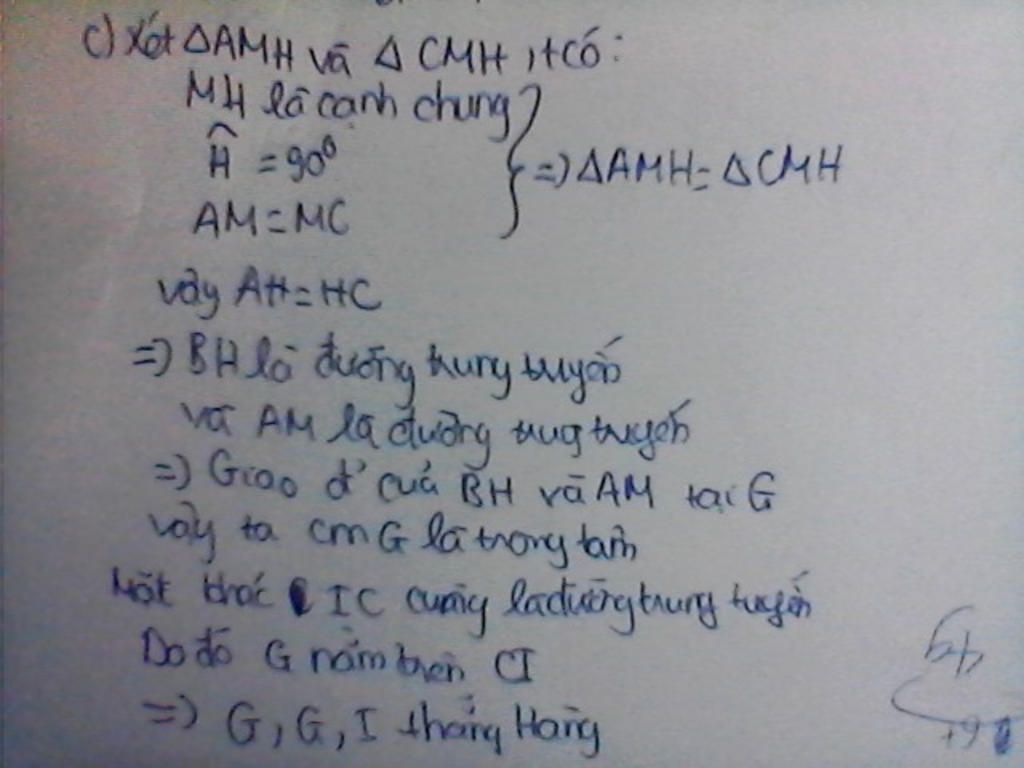 c) Xét ΔAMH và Δ CMH, tcó:
MH là cạnh chung
Ĥ = 90⁰
AM = MC
} => ΔAMH = ΔCMH
vậy AH = HC
=> BH là đường trung tuyến
và AM là đường trug tuyến
=> Giao đ' của BH và AM tại G
vậy ta cm G là trong tâm
Mặt khác IC cũng là đường trung tuyến
Do đó G nằm trên CI
=> G, G, I thẳng Hàng